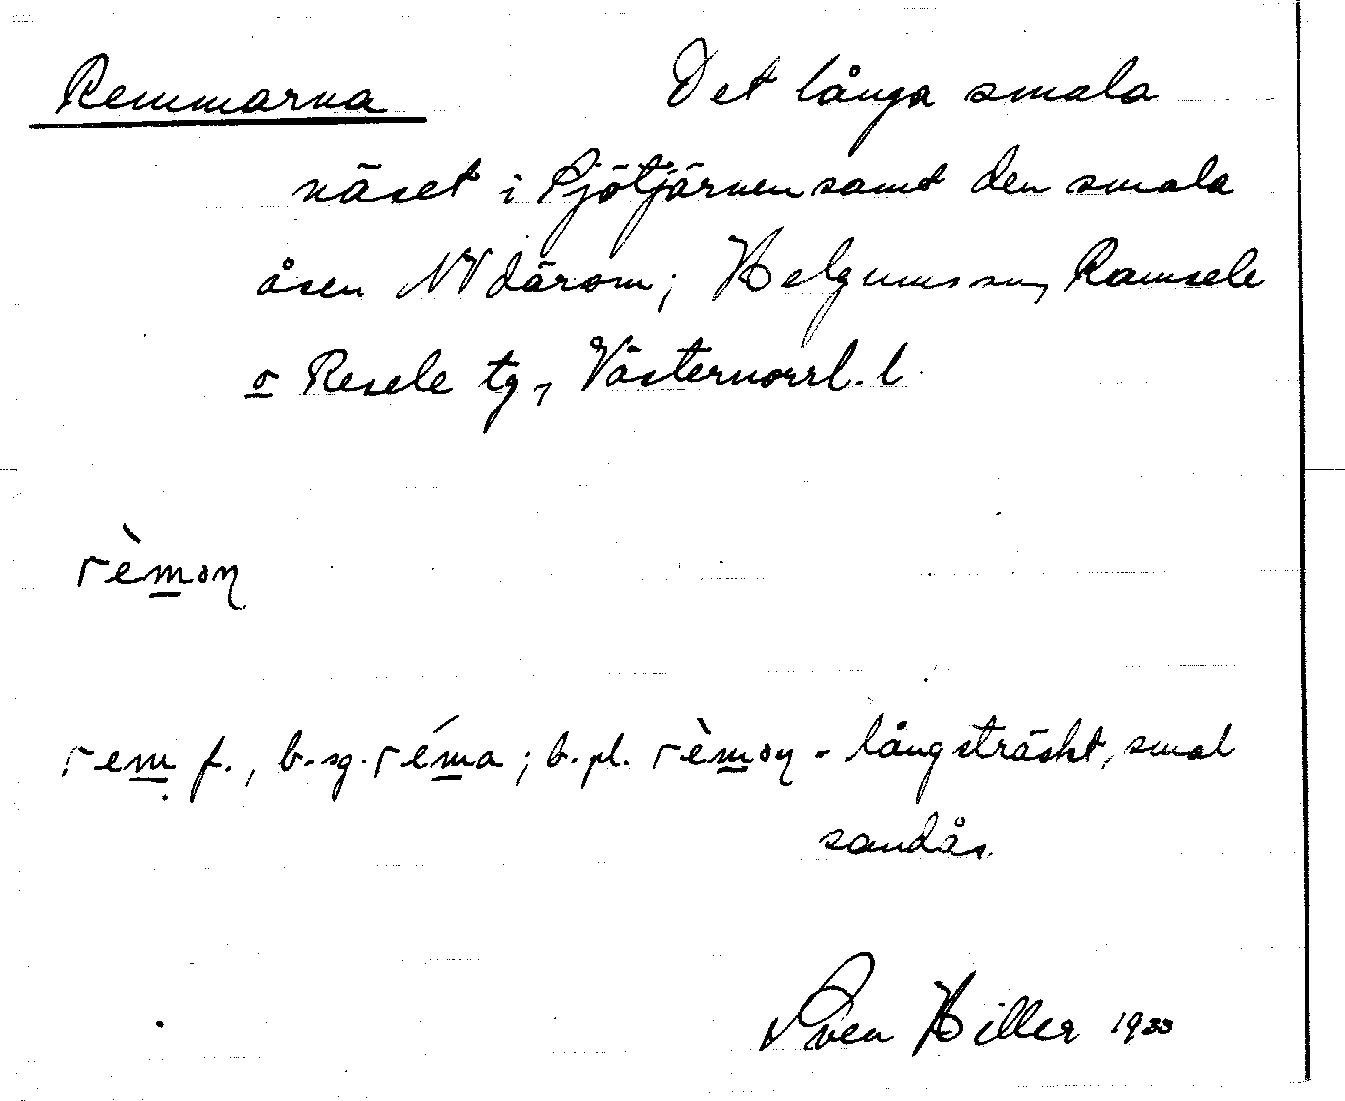 Remmarna Det långa smala
näset i Sjötjärnen samt den smala
åsen NV därom; Helgums sn, Ramsele
o Resele tg, Västernorrl. l.
rèmon
rem f., b.sg. réma; b.pl. rèmon - långsträckt, smal
sandås.
Sven Hiller 1933